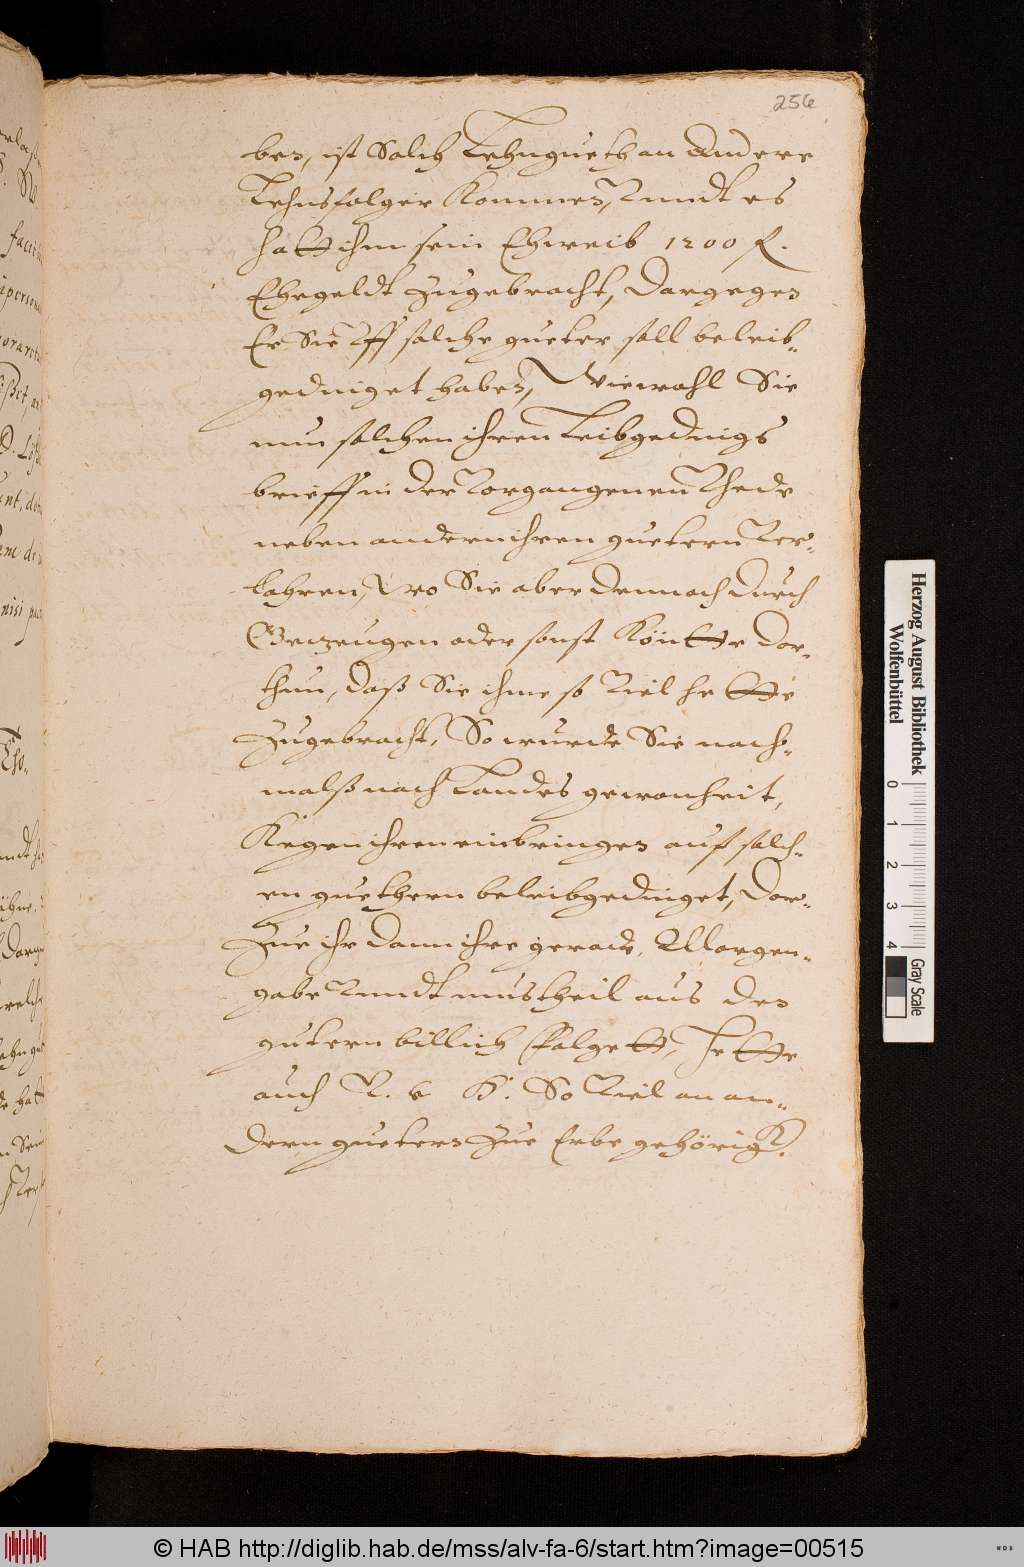 256
ben, ist Solch Lehngueth an Andere
Lehnsfolger Kommen, Vnndt es
hatt ihm sein Eheweib 1200 fl.
Ehegeldt zugebracht, Dargegen
Er Sie Vff solche gueter soll beleib-
gedinget haben, Wiewohl Sie
nun solchen ihren Leibgedings
brieff in der Vorgangenen Vhede
neben andern ihren guetern Ver-
lohren, Wo Sie aber dennoch durch
Gezeugen oder sonst Köntte dar-
thun, daß Sie ihme so Viel hette
zugebracht, So wurde Sie nach-
malß nach Landes gewonheit,
Kegen ihren einbringen auf solch-
en guethern beleibgedinget, Dar-
Zue ihr dann ihre gerade, Morgen-
gabe Vnndt mustheil aus den
gutern billich folgett, Hette
auch V. v. H. So Viel an an-
dern guetern Zue Erbe gehörig
Herzog August Bibliothek
Wolfenbüttel
0 1 2 3 4
Gray Scale
© HAB http://diglib.hab.de/mss/alv-fa-6/start.htm?image=00515